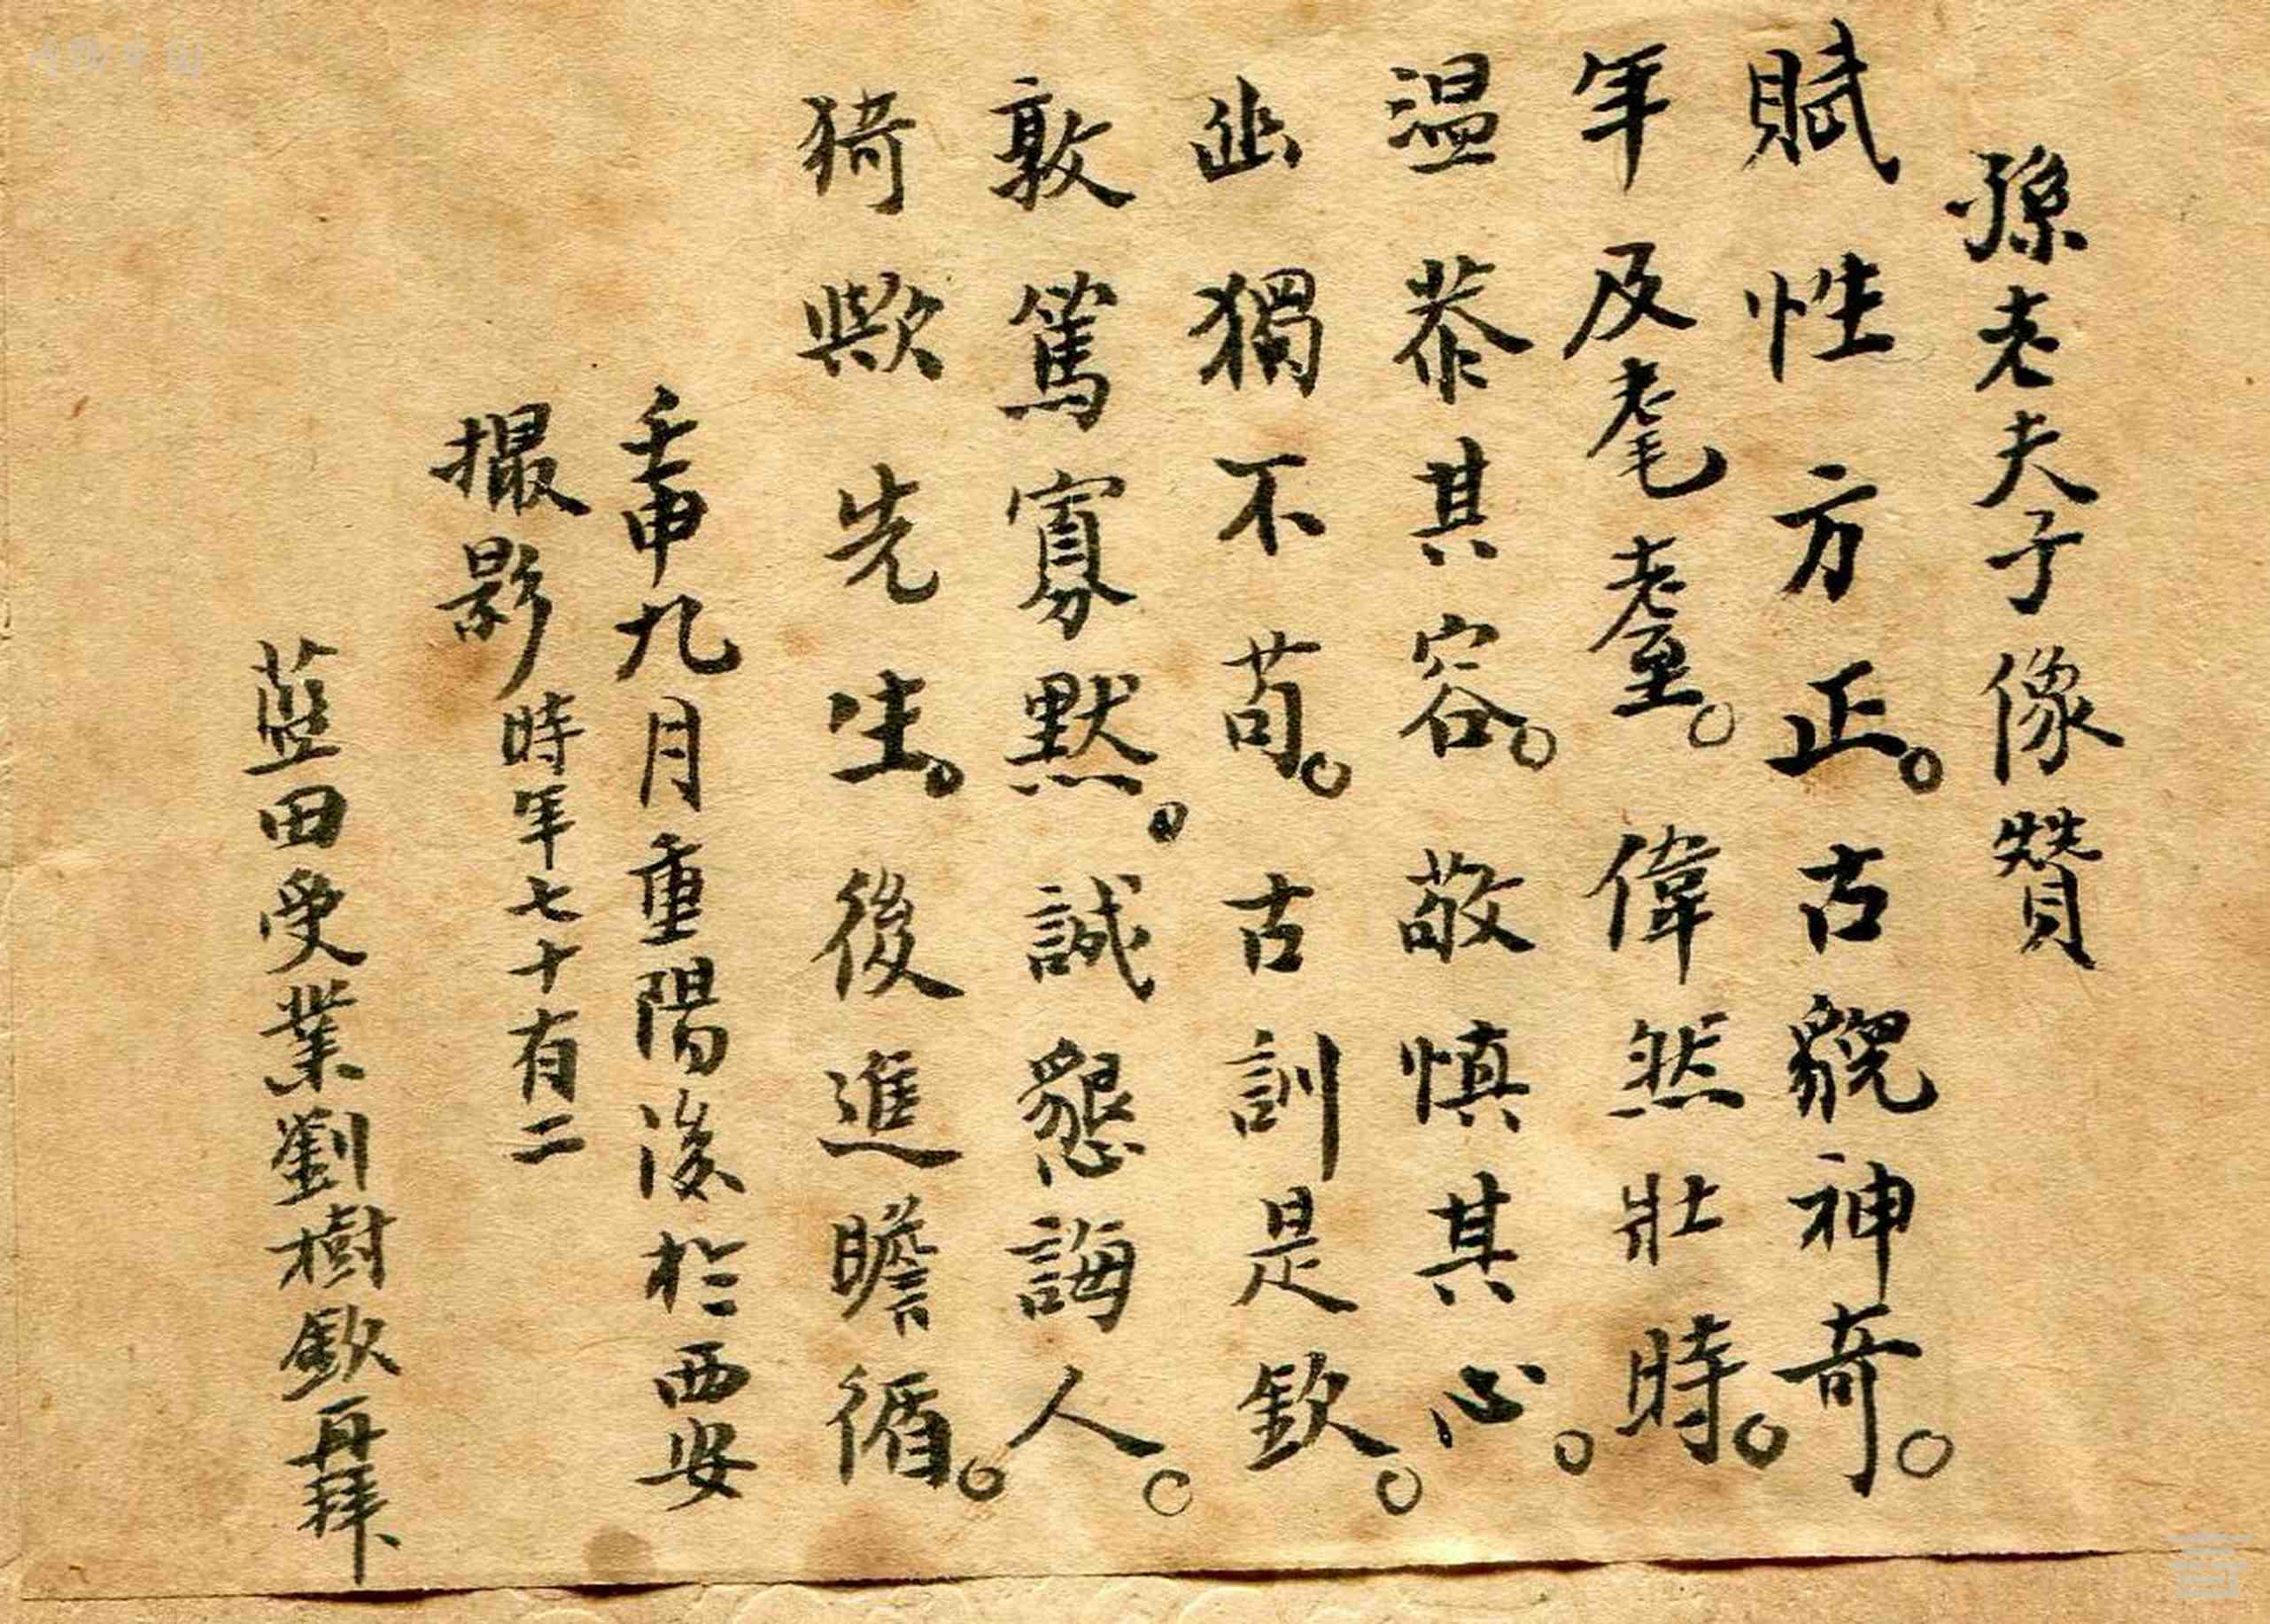 孫老夫子像贊
賦性方正。古貌神奇。
年及耄耋。偉然壯時。
温恭其容。敬慎其心。
幽獨不苟。古訓是欽。
敦篤寡默。誠懇誨人。
猗歟先生。後進瞻循。
壬申九月重陽後於西安
撮影時年七十有二
藍田受業劉樹欽再拜